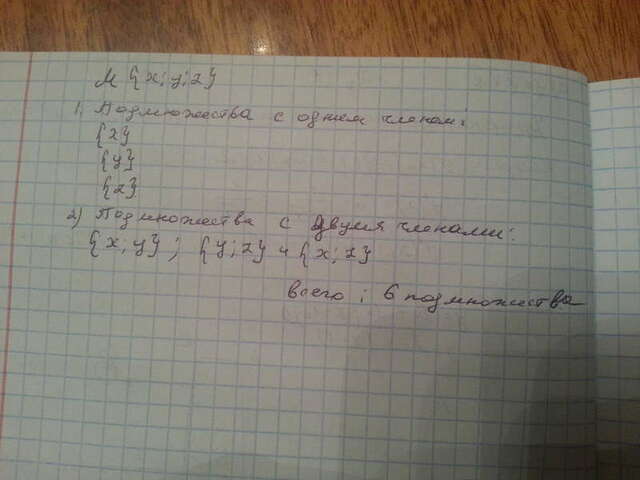 М {x; y; z}
1, Подмножества с одним членом:
{x}
{y}
{z}
2) Подмножества с двумя членами:
{x; y} ; {y; z} и {x; z}
всего : 6 подмножества